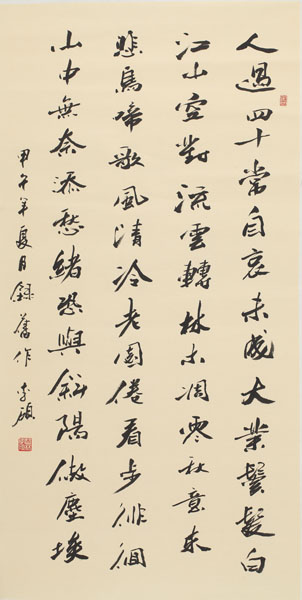 人過四十常自哀未成大業鬢髮白
江山空對流雲轉林木凋零秋意來
悲鳥啼歌風清冷老園倦看步徘徊
山中無奈添愁緒恐與斜陽做塵埃
甲午年夏月錄舊作